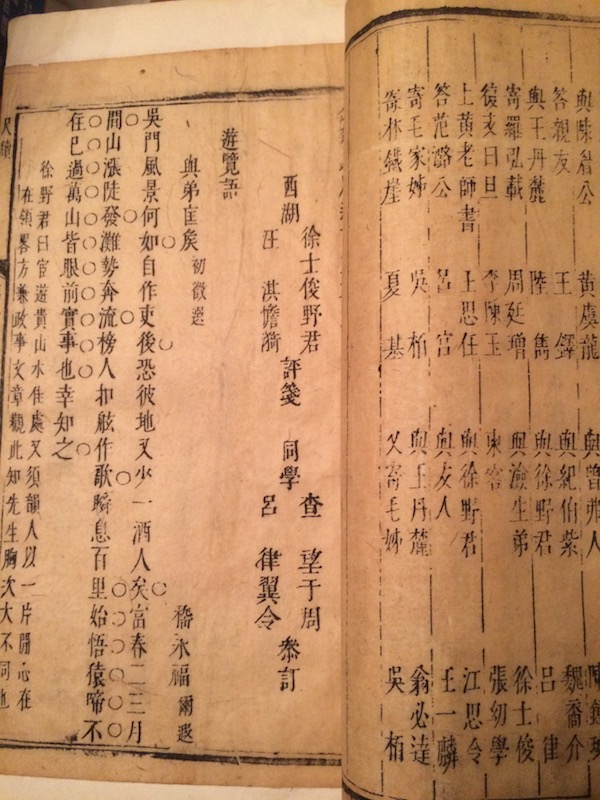 與陳眉公 黃虞龍 與曾弗人
答親友 王鐸 與紀伯紫 魏裔介
與王丹麓 陸雋 與徐野君 呂律
寄羅弘載 周廷增 與儉生弟 徐士俊
復支日旦 李陳玉 柬 張幼學
上黃老師書 王思任 與徐野君 江思令
答范潞公 呂宮 與友人 王一麟
寄毛家姊 吳柏 與王丹麓 翁必達
寄林鐵崖 夏基 又寄毛姊 吳柏
徐士俊野君 查望于周
西湖 評箋 同學 參訂
汪淇憺漪 呂律翼令
遊覽語
與弟匡矦 初徵選 嵇永福爾遐
吳門風景何如自作吏後恐彼地又少一酒人矣富春二三月
間山漲陡發灘勢奔流榜人扣舷作歌瞬息百里始悟猿啼不
在已過萬山皆眼前實事也幸知之
徐野君曰宦遊貴山水佳處又須韻人以一片閒心在
在領畧方兼政事文章觀此知先生胸次大不同也
尺牘